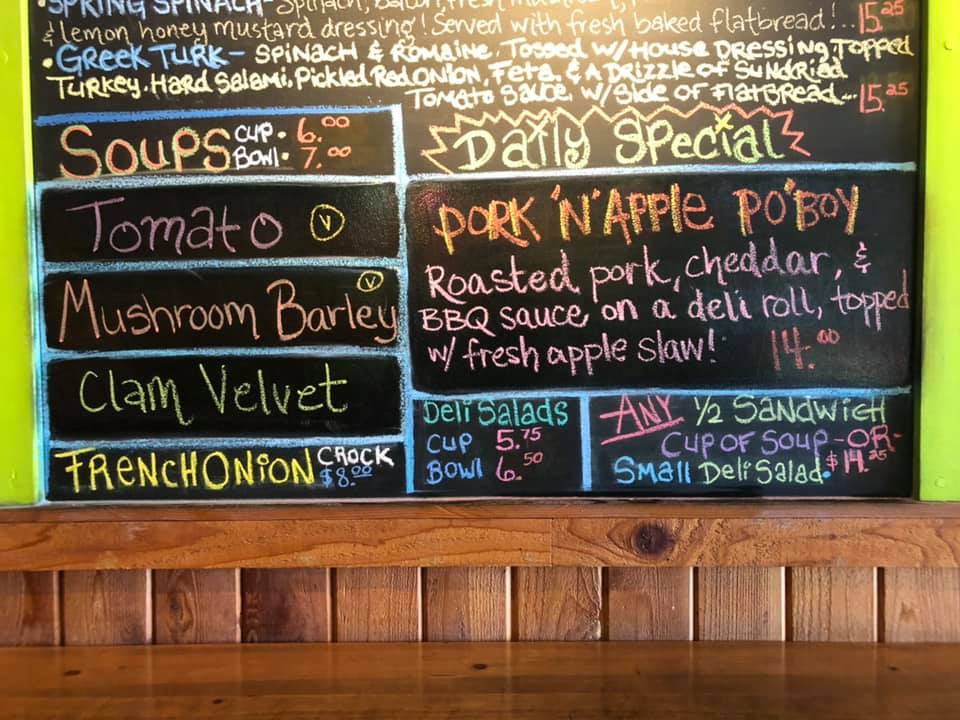 •SPRING SPINACH- Spinach, Bacon, fresh
& lemon honey mustard dressing! Served with fresh baked flatbread!... 15.25
•GREEK TURK- SPINACH & ROMAINE, TOSSED W/HOUSE DRESSING, TOPPED
TURKEY, HARD SALAMI, PICKLED RED ONION, FETA, & A DRIZZLE OF SUNDRIED
TOMATO SAUCE, W/SIDE OF FLATBREAD... 15.25
SOUPS CUP • 6.00
BOWL • 7.00
Tomato V
Mushroom Barley V
Clam Velvet
FRENCH ONION CROCK $8.00
Daily Special
PORK 'N' APPLE PO'BOY
Roasted pork, cheddar, &
BBQ sauce on a deli roll, topped
w/ fresh apple slaw! 14.00
DELI SALADS
CUP 5.75
BOWL 6.50
ANY 1/2 SANDWICH
CUP OF SOUP -OR-
SMALL DELI SALAD• $14.25